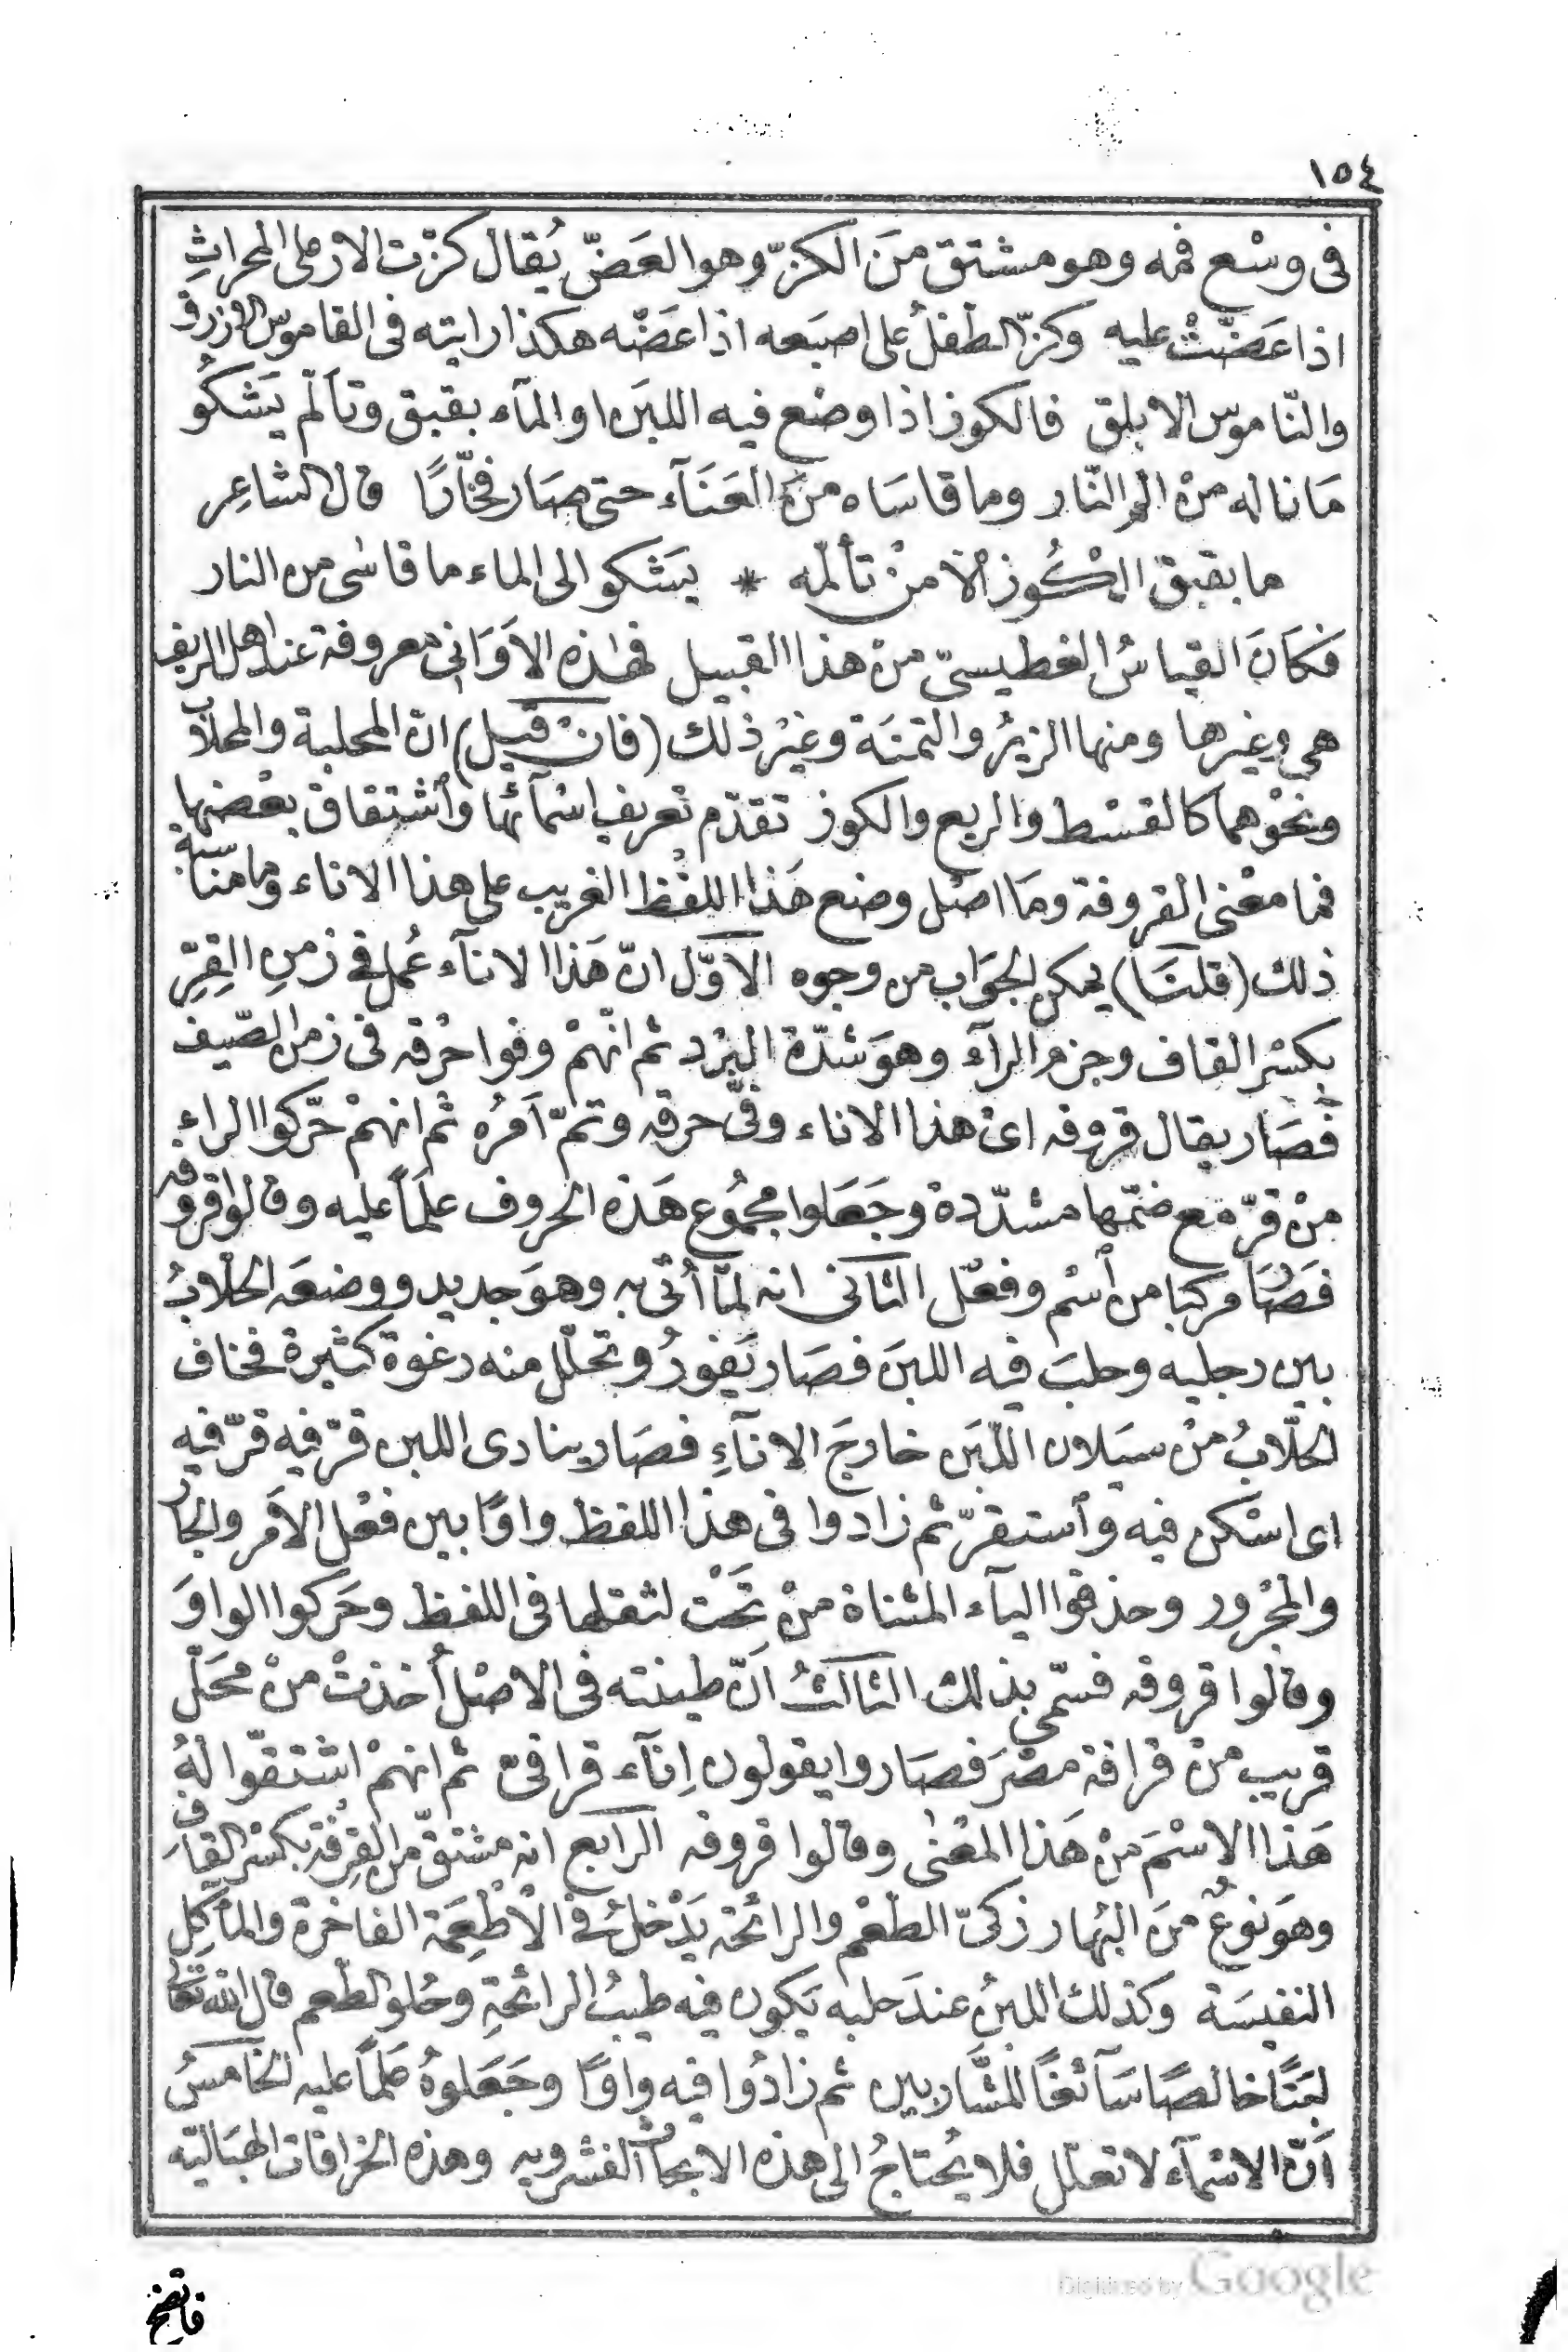 ١٥٤
فى وسْع فمه وهو مشتق منَ الكزّ وهو العَضّ يُقال كزّت الارض على المحراثِ
اذا عَضّتْ عليه وكزّ الطفلُ على اصبَعه اذا عَضّه هكذا رايته فى القاموس الازرق
والنّاموس الابلق فالكوز اذا وضع فيه اللبَن او المآء بقبق وتألّم يَشكُو
مَا ناله منْ الم النّار وما قاسَاه منَ العَنَآء حتى صَار فخّارًا قال الشاعِر
ما بقبق الكُوز ألّا منْ تألّمه * يَشكو الى الماء ما قاسٰى من النار
فكانَ القياسُ الفطيسىّ منْ هذا القبيل فهٰذه الاَوَانى معروفة عند اهل الريف
هى وغيرها ومنها الزيرُ والتمنَة وغيْر ذلك (فانْ قيل) انّ المحلبة والمحلاب
ونحْوهمَا كالقسْط والربع والكوز تقدّم تعريف اسْمآئها وأشتقاق بعْضها
فما معْنى القروفة ومَا اصْل وضع هَذا اللفْظ الغريب على هذا الاناء وما مناسبة
ذلك (قلنَا) يمكن الجوَاب من وجوه الاَوّل انّ هَذا الانآء عُمل فى زمنِ القِرّ
بكسْر القاف وجزم الرآء وهوَ شدّة البرْد ثم انّهمْ وفوا حرْقه فى زمن الصّيف
فصَار يقال قروفه اىْ هذا الاناء وفىّ حرقه وتمّ اَمرُه ثم انهمْ حَرّكوا الراء
منْ قرّ معَ ضمّها مشدّدة وجَعَلوا مجمُوع هَذه الحروف علَماً عليه وقالوا قروفه
فصَار مركبا من أسْم وفعْل الثانى انه لمّا أُتى به وهوَ جديد ووضعَه الحلّابُ
بين رجليه وحلبَ فيه اللبنَ فصَار يَفورُ وتحلّل منه رغوة كثيرة فخاف
الحلّابُ منْ سيَلان اللّبَن خارجَ الانآءِ فصَار ينادى اللبن قرّفيه قرّفيه
اى اسْكن فيه وأستقرّ ثم زادوا فى هذا اللفظ واوًا بين فعْل الاَمر والجار
والمجْرور وحذفوا اليآء المثناة منْ تَحْت لثقلها فى اللفظ وحَركوا الواوَ
وقالوا قروفه فسّمى بذلك الثالثُ اَنّ طينته فى الاصْل أُخذتْ منْ مَحَلّ
قريب منْ قرافة مصْرَ فصَاروا يقولون اِنآء قرافىّ ثم انهمْ اشتقّوا لهُ
هَذا الاسْمَ منْ هَذا المعْنٰى وقالوا قروفه الرابع انه مشتقّ من القِرْفة بكسْر القاف
وهوَ نوعٌ منَ البُهار زكىّ الطعْم والرائحة يَدْخلُ فى الاْطعمَة الفاخرة والمآكِل
النفيسَة وكذلك اللبنُ عندَ حلبه يَكون فيه طيبُ الرائحةِ وحُلو الطّعم قال الله تعالى
لبَنًا خالصًا سَآئغًا للشَّاربين ثم زادُوا فيه واوًا وجَعَلوهُ عَلماً عليه الخامسُ
اَنّ الاسْمآء لا تعلّل فلا يُحتاجُ الى هذه الابحاث الفشرويه وهذه الخرافات الهبَاليّه
فاتضح
Digitized by Google